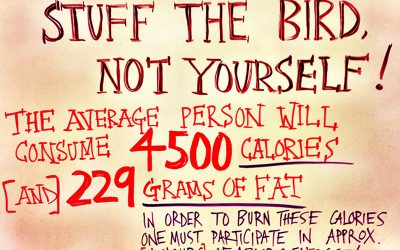 STUFF THE BIRD,
NOT YOURSELF!
THE AVERAGE PERSON WILL
CONSUME 4500 CALORIES
[AND] 229 GRAMS OF FAT
IN ORDER TO BURN THESE CALORIES
ONE MUST PARTICIPATE IN APPROX.